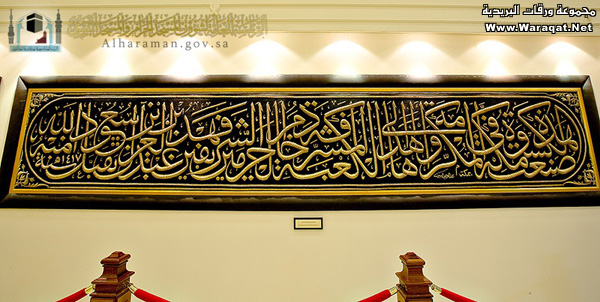 مجموعة ورقات البريدية
Www.Waraqat.Net
Alharaman.gov.sa
صنعت هذه الكسوة في مكة المكرمة وأهداها إلى الكعبة المشرفة خادم الحرمين الشريفين فهد بن عبد العزيز آل سعود تقبل الله منه